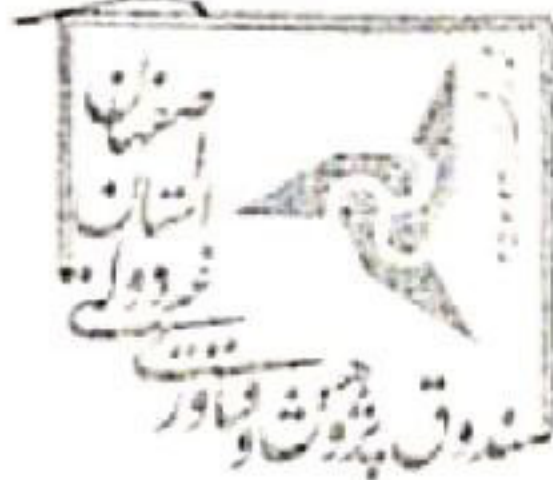 صندوق پژوهش و فناوری
غیردولتی
استان
اصفهان